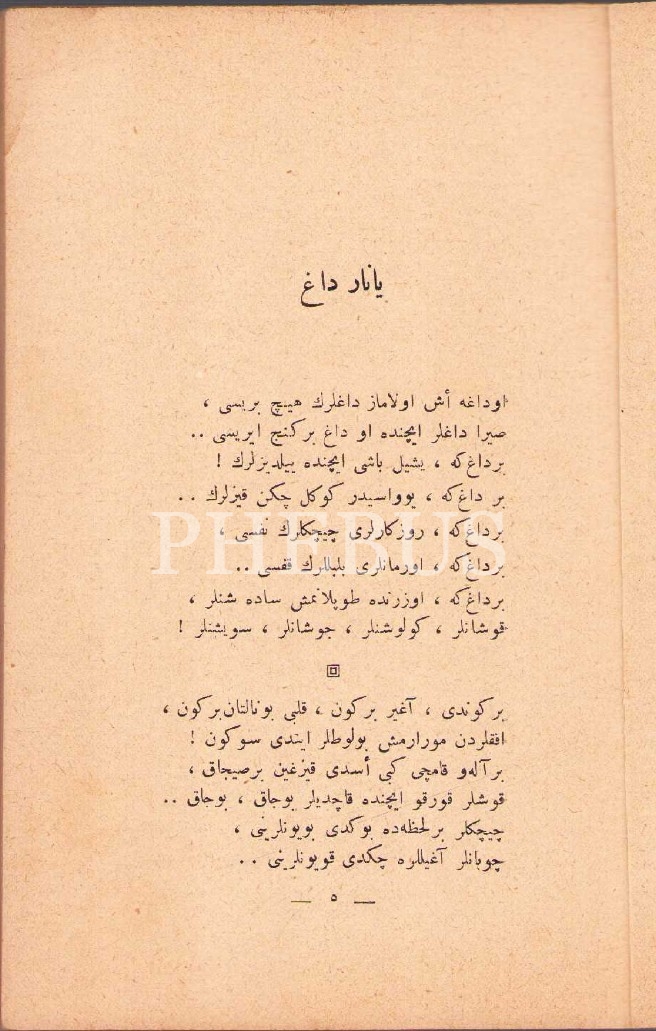 يانار داغ
اوداغه أش اولاماز داغلرك هيچ بريسى ،
صيرا داغلر ايچنده او داغ بركنج ايريسى ..
برداغ‌كه ، يشيل باشى ايچنده ييلديزلرك !
بر داغ‌كه ، يوواسيدر كوكل چكن قيزلرك ..
برداغ‌كه ، روزكارلرى چيچكلرك نفسى ،
برداغ‌كه ، اورمانلرى بلبللرك قفسى ..
برداغ‌كه ، اوزرنده طوپلانمش ساده شنلر ،
قوشانلر ، كولوشنلر ، جوشانلر ، سويشنلر !
PHEBUS
بركوندى ، آغير بركون ، قلبى بونالتان‌بركون ،
افقلردن مورارمش بولوطلر ايتدى سوكون !
برآلەو قامچى كبى أسدى قيزغين برصيجاق ،
قوشلر قورقو ايچنده قاچديلر بوجاق ، بوجاق ..
چيچكلر برلحظه‌ده بوكدى بويونلرينى ،
چوبانلر آغيللره چكدى قويونلرينى ..
— ٥ —